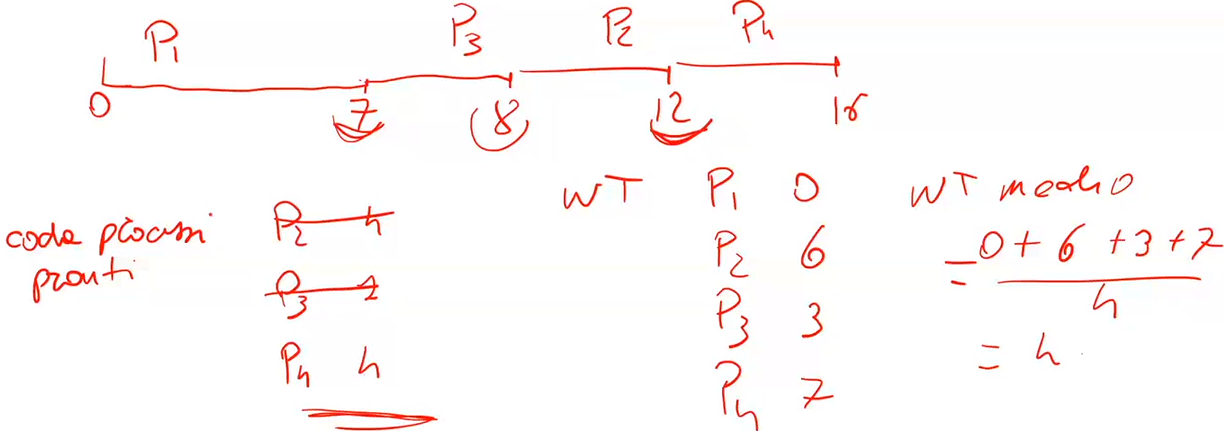 P1 P3 P2 P4
0 7 8 12 16
coda processi pronti
P2 4
P3 1
P4 4
WT P1 0
P2 6
P3 3
P4 7
WT medio
= 0 + 6 + 3 + 7
4
= 4